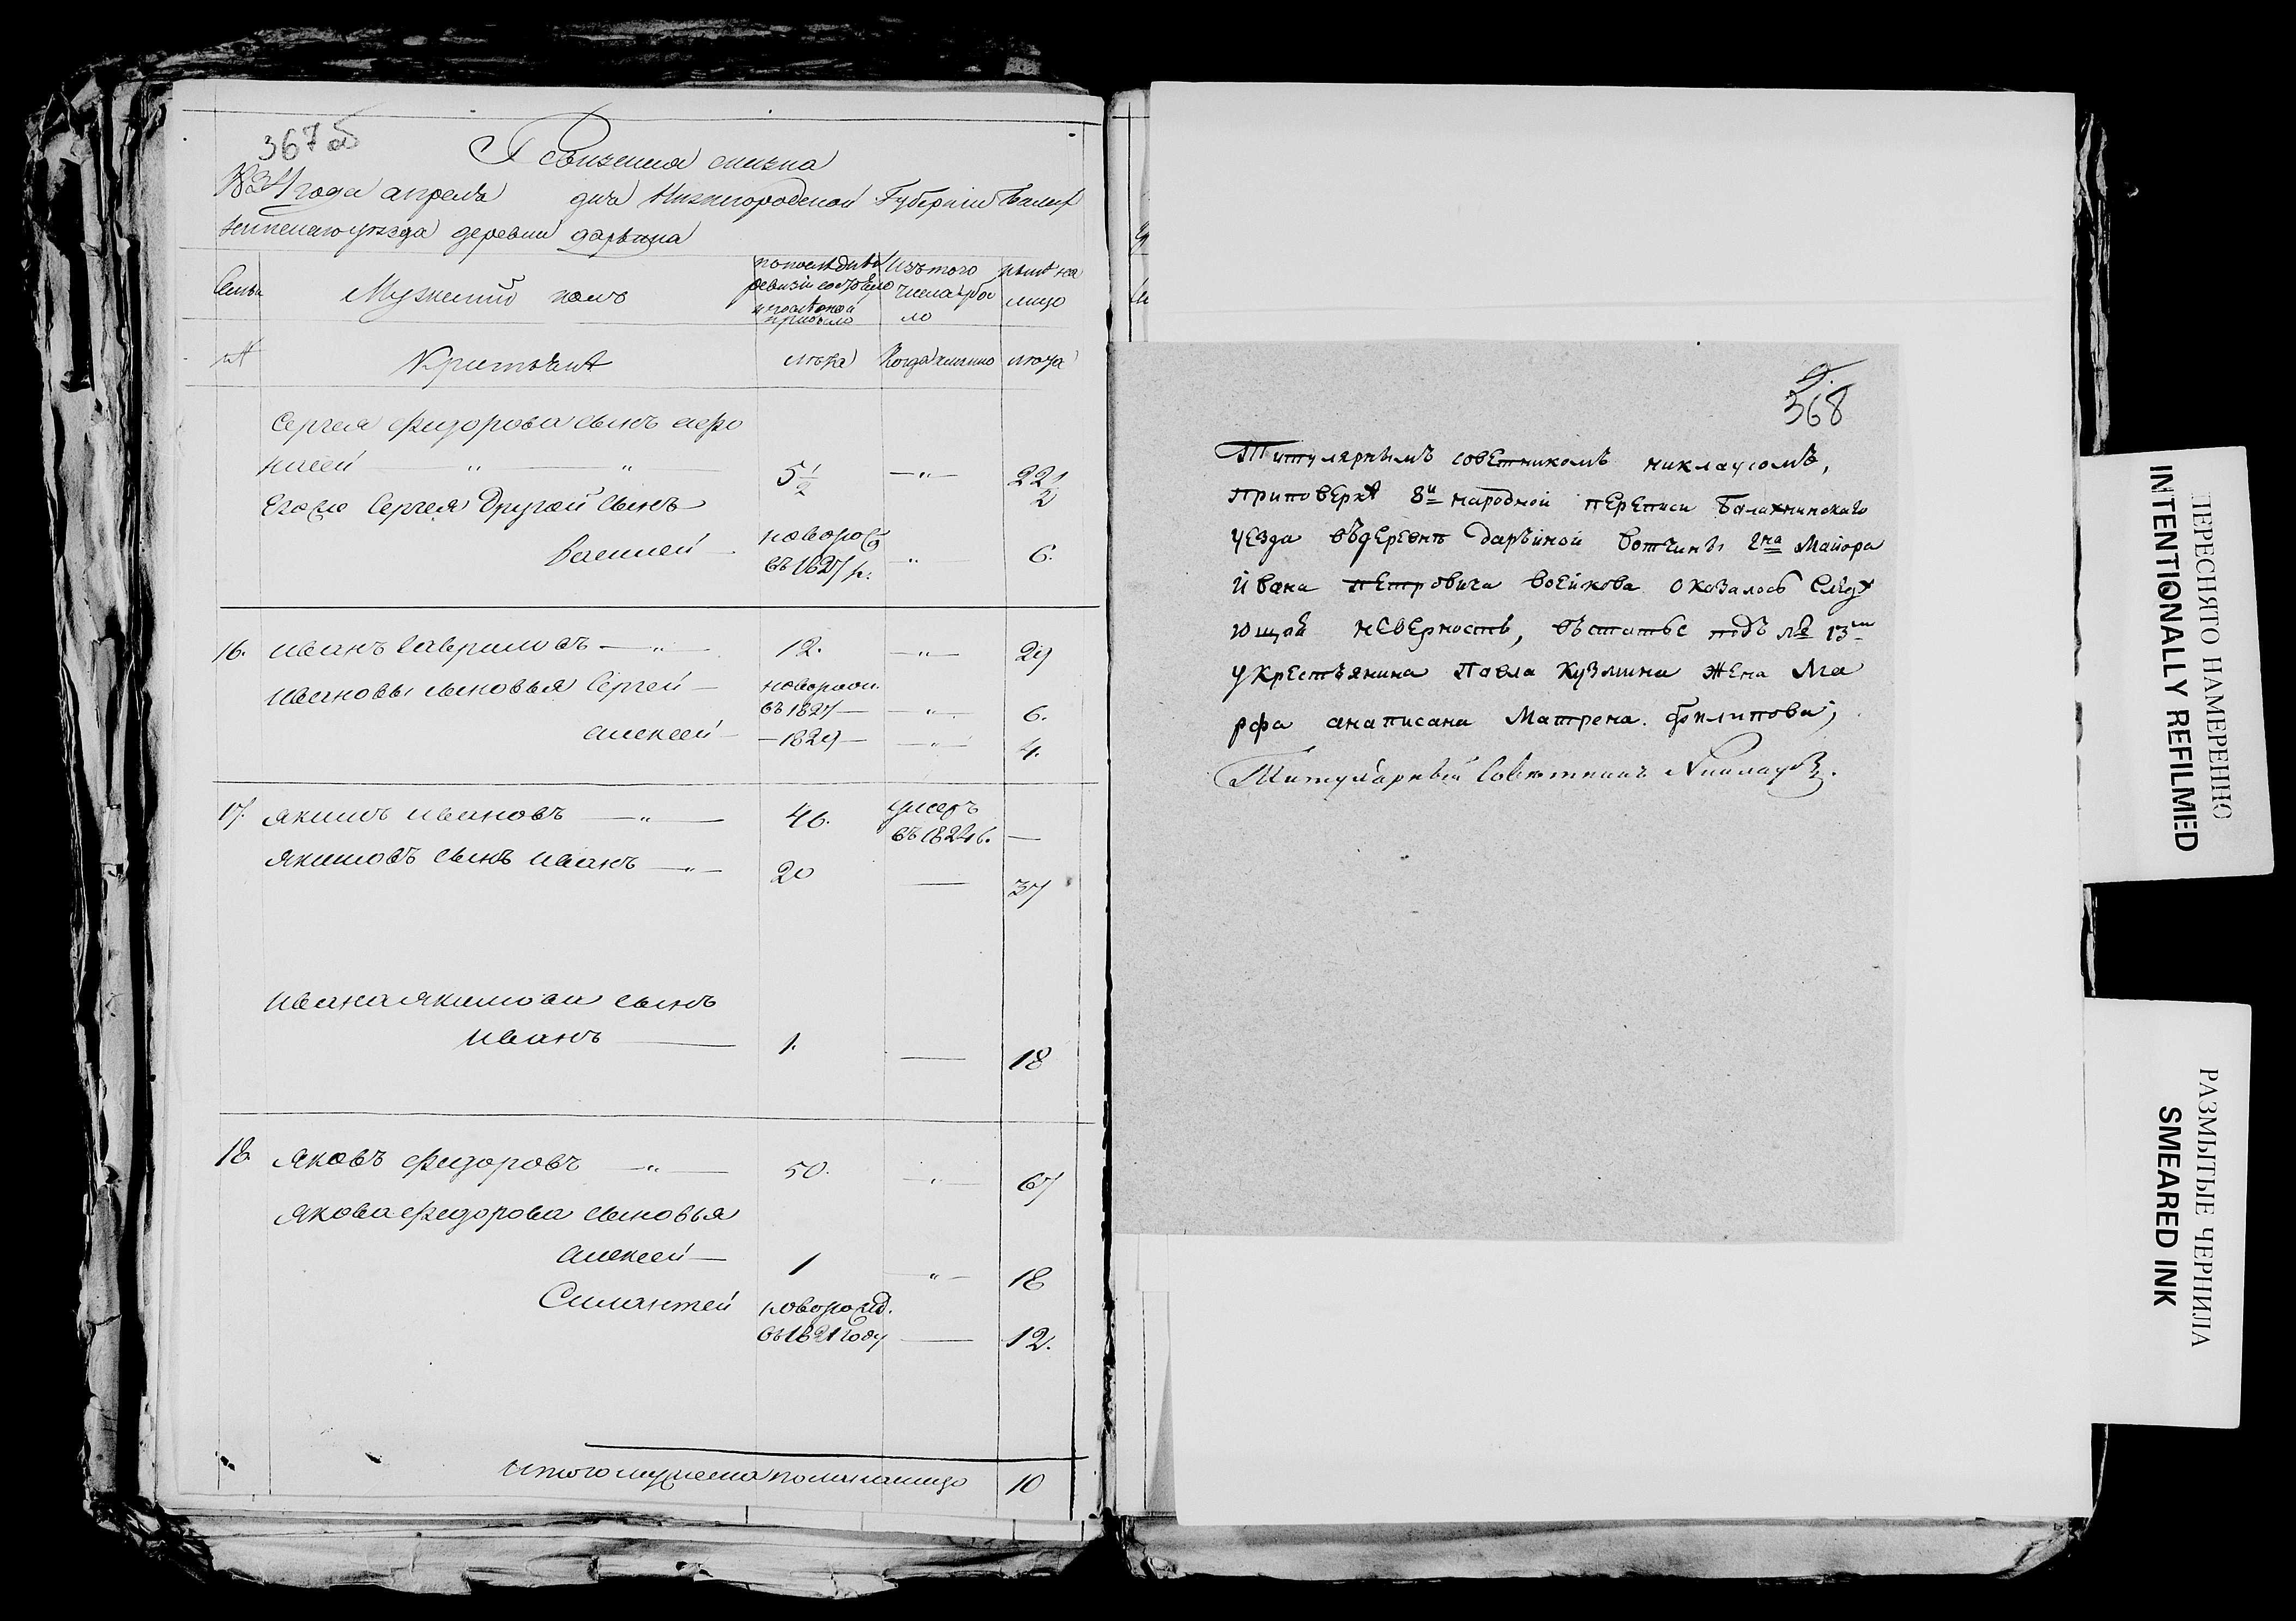 367 об
Ревизская сказка
1834 года апреля дня Нижегородской Губернии Балах
нинскаго уезда деревни дарьина
Семьи
Мужеский полъ
по последней ревизии состояло и после оной прибыло
Изъ того числа выбыло
ныне на лицо
№
Крестьяне
лета
Когда именно
лета
Сергея Федорова сынъ афо
насей — " — " 5½ — " — 22½
Его же Сергея Другой Сынъ
Василей — новорож въ 1827 г. " — 6.
16. Иванъ Гавриловъ — " — 12. — " — 29
Ивановы сыновья Сергей — новорож. въ 1827 — — " — 6.
Алексей — — 1829 — — " — 4.
17. Якимъ Ивановъ — " — 46. умеръ въ 1824 г. —
Якимовъ сынъ Иванъ — " — 20 — 37
Ивана Якимова сынъ
Иванъ — 1. — 18
18. Яковъ Федоровъ — " — 50. — " — 67
Якова Федорова сыновья
Алексей — 1 — " — 18
Силантей новорожд. въ 1821 году — 12.
Итого мужеска пола на лицо 10
368
Титулярнымъ советникомъ никлаусомъ,
приповеркѣ 8й народной переписи Балахнинскаго
уезда въдеревнѣ дарьиной вотчины гна Майора
Ивана Петровича Воейкова оказалось Следу
ющая неверность, въстатье подъ № 13м
укрестьянина Павла Кузмина жена Ма
рфа анаписана Матрена Филипова;
Титулярный Советникъ Никлаусъ.
ПЕРЕСНЯТО НАМЕРЕННО
INTENTIONALLY REFILMED
РАЗМЫТЫЕ ЧЕРНИЛА
SMEARED INK